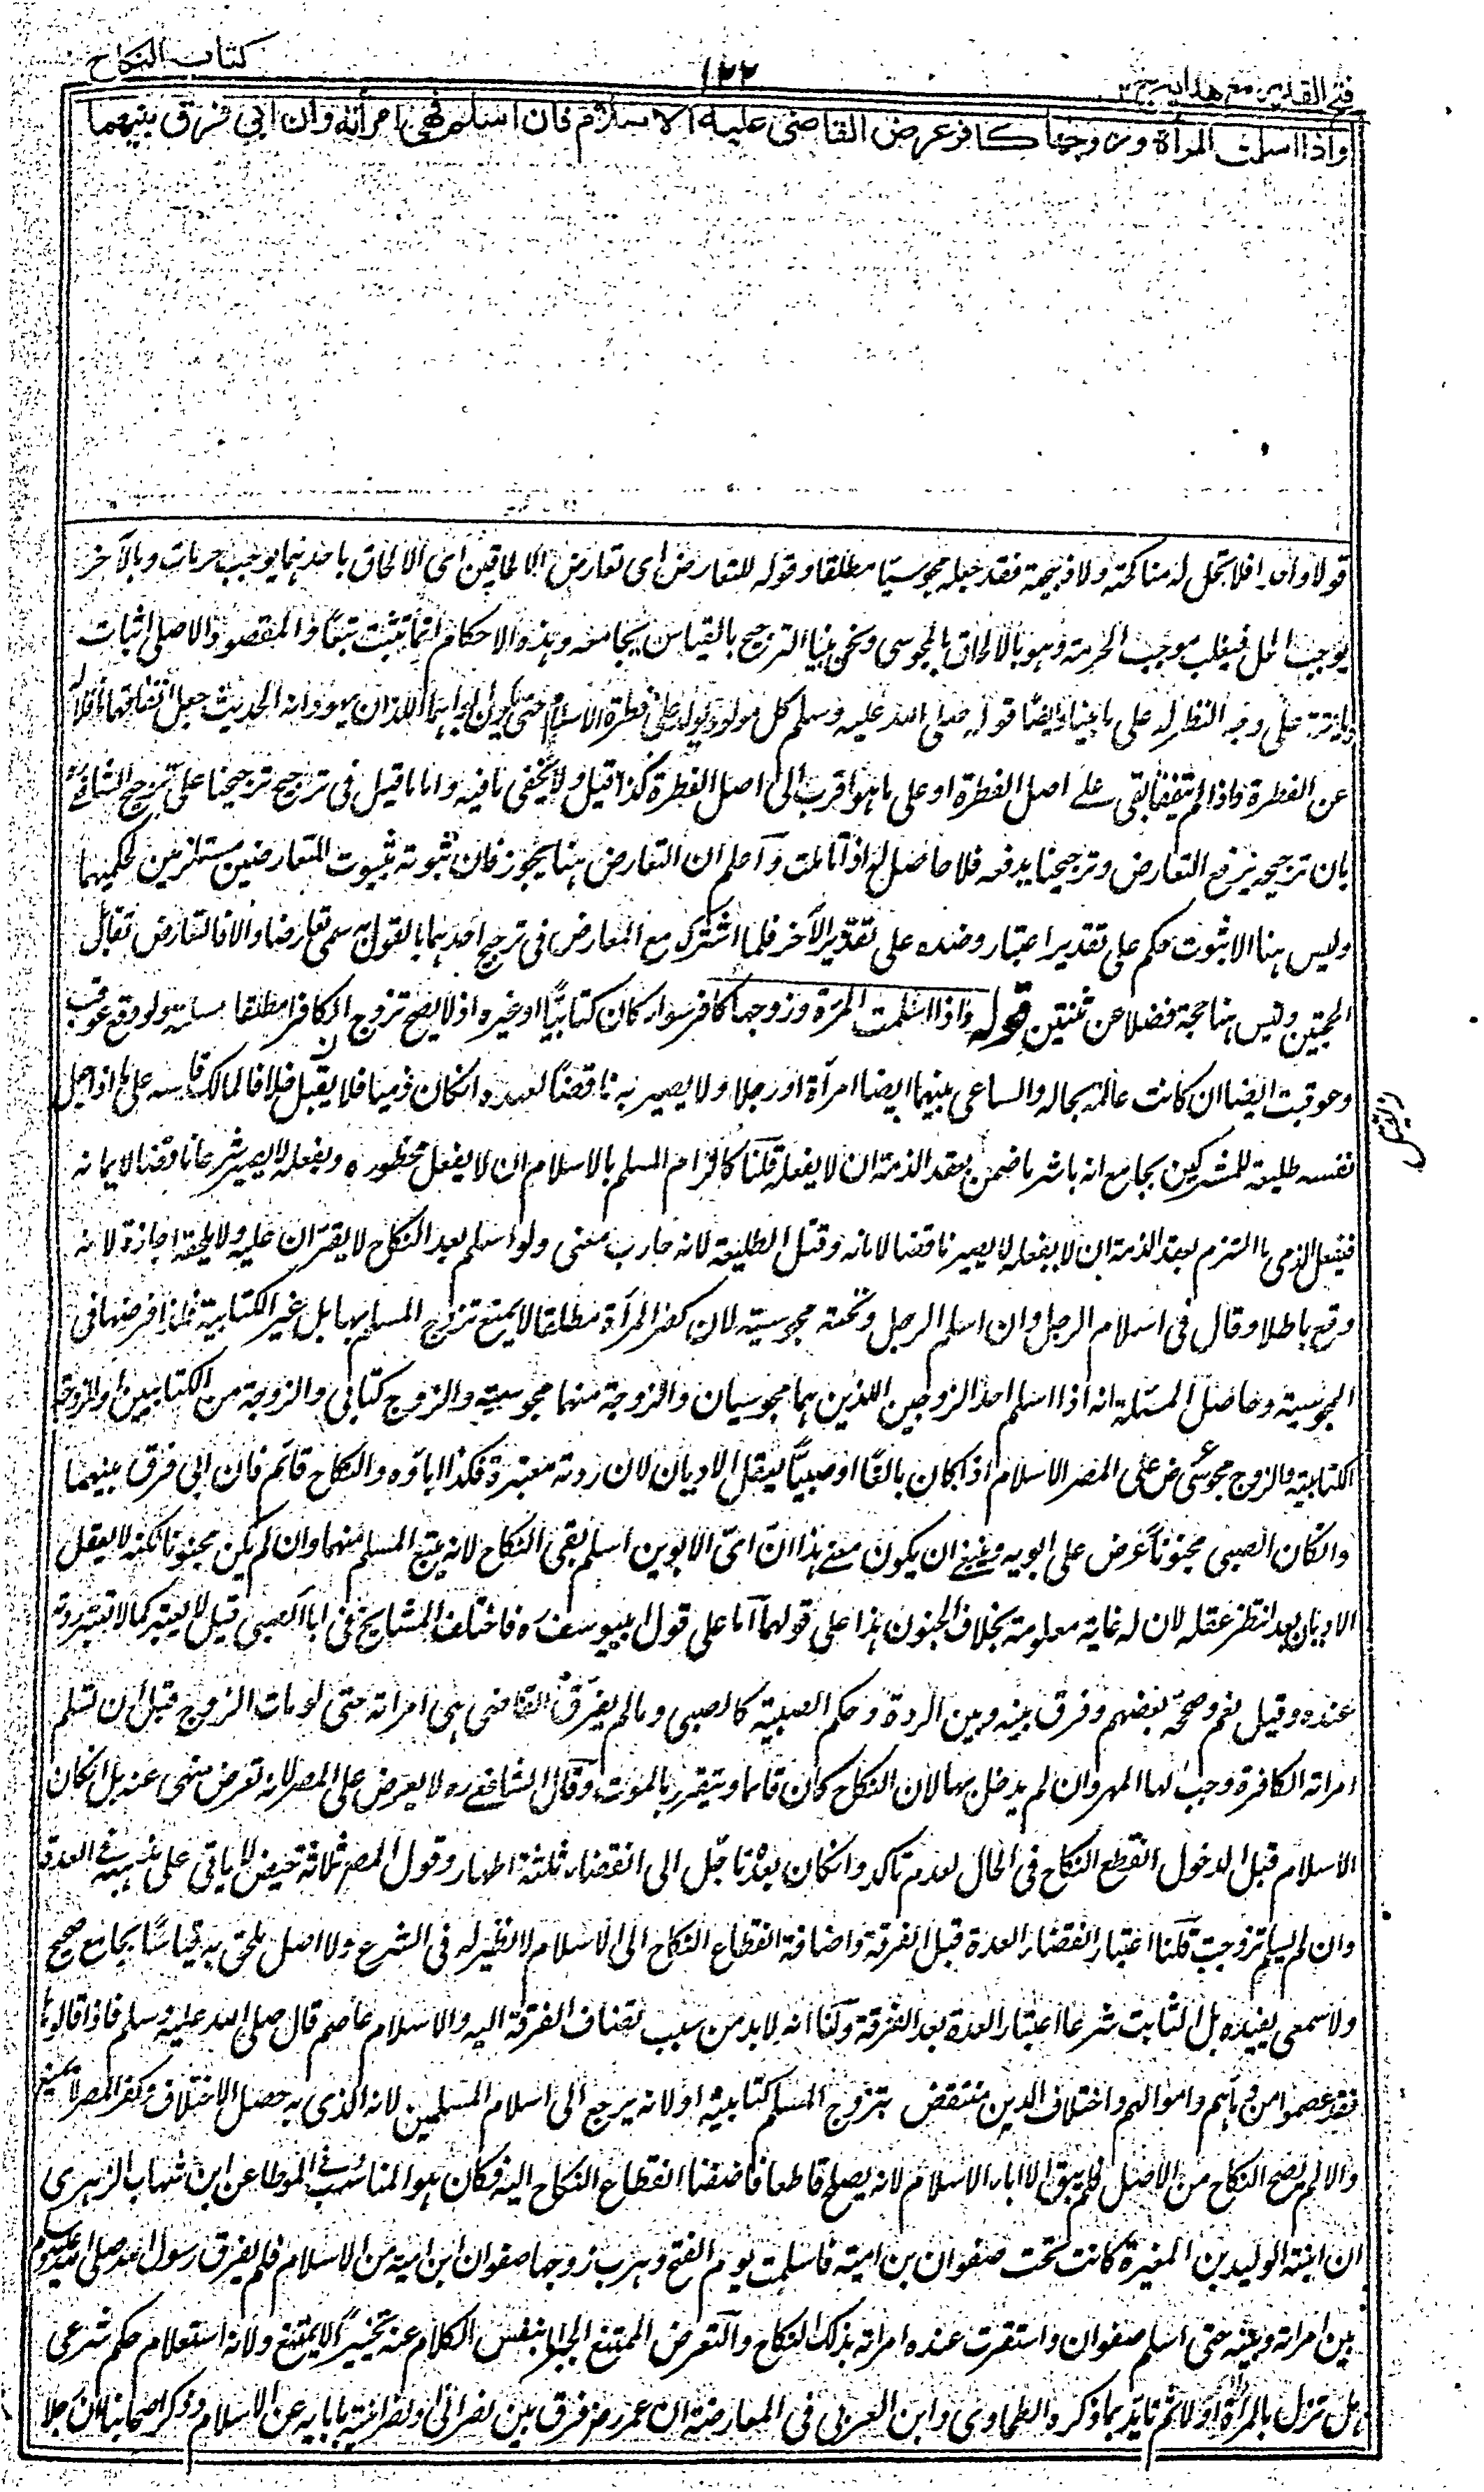 فتح القدير مع هدايه ج ٢
١٢٢
كتاب النكاح
واذا اسلمت المرأة وزوجها كافر عرض القاضى عليه الاسلام فان اسلم فهى امرأته وان ابى فرق بينهما
قولا واحدا فلا تحل له مناكحته ولا ذبيحته فقد جعله مجوسيا مطلقا وقوله للتعارض اى تعارض الالحاقين اى الالحاق باحدهما يوجب حرمات وبالآخر
يوجب الحل فيغلب موجب الحرمة وهو بالالحاق بالمجوسى ونحن بينا الترجيح بالقياس بجامعه وهذه الاحكام انما تثبت تبعا والمقصود الاصلى اثبات
على وجه النظر له على ما بينا وايضا قوله صلى الله عليه وسلم كل مولود يولد على فطرة الاسلام حتى يكون ابواه هما اللذان يهودانه الحديث جعل اتفاقهما ناقلا له
عن الفطرة فاذا لم يتفقا بقى على اصل الفطرة او على ما هو اقرب الى اصل الفطرة كذا قيل ولا يخفى ما فيه واما ما قيل فى ترجيح ترجيحنا على ترجيح الشافعى
بان ترجيحه يرفع التعارض وترجيحنا يدفعه فلا حاصل له اذا تأملت واعلم ان التعارض هنا يجوز فان ثبوته بثبوت المتعارضين مستلزمين لحكميهما
وليس هنا الا ثبوت حكم على تقدير اعتبار وضده على تقدير الآخر فلما اشترك مع المعارض فى ترجيح احدهما بالقول به سمى تعارضا والا فالتعارض تقابل
الحجتين وليس هنا حجة فضلا عن ثنتين قوله واذا اسلمت المرأة وزوجها كافر سواء كان كتابيا او غيره اذ لا يصح تزوج الكافر مطلقا مسلمة ولو وقع عوقب
وعوقبت ايضا ان كانت عالمة بحاله والساعى بينهما ايضا امرأة او رجلا ولا يصير به ناقضا لعهده انكان ذميا فلا يقتل خلافا لمالك قاسه على ما اذا جعل
نفسه طليعة للمشركين بجامع انه باشر ما ضمن بعقد الذمة ان لا يفعله قلنا كالتزام المسلم بالاسلام ان لا يفعل محظوره وبفعله لا يصير شرعا ناقضا لايمانه
ففعل الذمى ما التزم بعقد الذمة ان لا يفعله لا يصير ناقضا لامانه وقتل الطليعة لانه حارب معنى ولو اسلم بعد النكاح لا يقران عليه ولا يلحقه اجازة لانه
وقع باطلا وقال فى اسلام الرجل وان اسلم الرجل وتحته مجوسية لان كفر المرأة مطلقا لا يمنع تزوج المسلم بها بل غير الكتابية فلذا فرضها فى
المجوسية وحاصل المسئلة انه اذا اسلم احد الزوجين اللذين هما مجوسيان والزوجة منهما مجوسية والزوج كتابى والزوجة من الكتابيين او الزوجة
الكتابية والزوج مجوسى عرض على المصر الاسلام اذا كان بالغا او صبيا يعقل الاديان لان ردته معتبرة فكذا اباؤه والنكاح قائم فان ابى فرق بينهما
وانكان الصبى مجنونا عرض على ابويه وينبغى ان يكون معنى هذا ان اى الابوين اسلم بقى النكاح لانه يتبع المسلم منهما وان لم يكن مجنونا لكنه لا يعقل
الاديان بعد انتظر عقله لان له غاية معلومة بخلاف الجنون هذا على قولهما اما على قول ابى يوسف ره فاختلف المشايخ فى اباء الصبى قيل لا يعتبر كما لا تعتبر ردته
عنده وقيل نعم وصححه بعضهم وفرق بينه وبين الردة وحكم الصبية كالصبى وما لم يفرق القاضى هى امرأته حتى لو مات الزوج قبل ان تسلم
امرأته الكافرة وجب لها المهر وان لم يدخل بها لان النكاح كان قائما ويتقرر بالموت وقال الشافعى ره لا يعرض على المصر لانه تعرض منهى عنه بل انكان
الاسلام قبل الدخول انقطع النكاح فى الحال لعدم تاكده وانكان بعده تاجل الى انقضاء ثلثة اطهار وقول المصر ثلاثة حيض لا ياتى على مذهبه فى العدة
وان لم يسلم تزوجت قلنا اعتبار انقضاء العدة قبل الفرقة واضافة انقطاع النكاح الى الاسلام لا نظير له فى الشرع ولا اصل يلحق به قياسا بجامع صحيح
ولا سمعى يفيده بل الثابت شرعا اعتبار العدة بعد الفرقة ولنا انه لا بد من سبب تضاف الفرقة اليه والاسلام عاصم قال صلى الله عليه وسلم فاذا قالوها
فقد عصموا منى دماءهم واموالهم واختلاف الدين منتقض بتزوج المسلم كتابية او لانه يرجع الى اسلام المسلمين لانه الذى به حصل الاختلاف وكفر المصر لا يمنع
والا لم يصح النكاح من الاصل فلم يبق الا اباء الاسلام لانه يصلح قاطعا فاضفنا انقطاع النكاح اليه فكان هو المناسب وفى الموطا عن ابن شهاب الزهرى
ان ابنة الوليد بن المغيرة كانت تحت صفوان بن امية فاسلمت يوم الفتح وهرب زوجها صفوان ابن امية من الاسلام فلم يفرق رسول الله صلى الله عليه وسلم
بين امرأته وبينه حتى اسلم صفوان واستقرت عنده امرأته بذلك النكاح والتعرض الممتنع الجبر لا بنفس الكلام عنه تخييرا لا يمتنع ولانه استعلام حكم شرعى
هل تزل بالمرأة او لا ثم تايد بما ذكره الطحاوى وابن العربى فى المعارضة ان عمر رض فرق بين نصرانى ونصرانية بابايه عن الاسلام وذكر اصحابنا ان رجلا